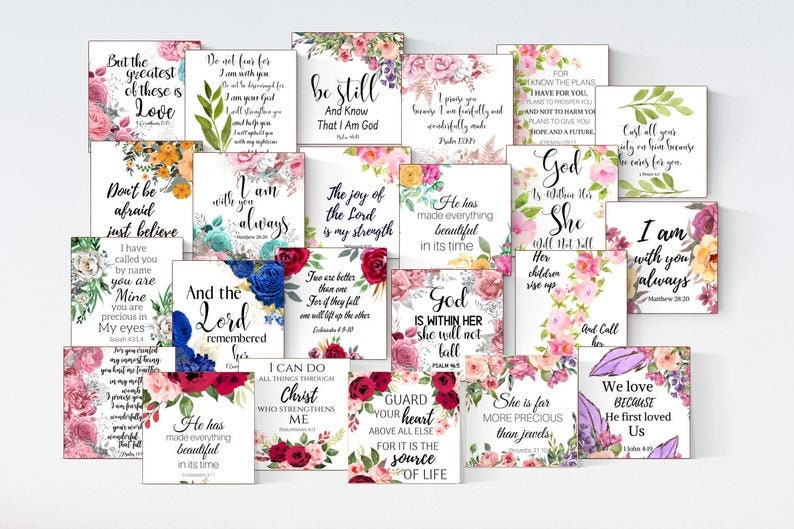 But the
greatest
of these is
Love
1 Corinthians 13:13
Do not fear for
I am with you
Do not be discouraged for
I am your God
I will strengthen you
and help you
I will uphold you
with my righteous
be still
And Know
That I Am God
Psalm 46:10
I praise you
because I am fearfully and
wonderfully made
Psalm 139:14
FOR
I KNOW THE PLANS
I HAVE FOR YOU,
PLANS TO PROSPER YOU
AND NOT TO HARM YOU
PLANS TO GIVE YOU
HOPE AND A FUTURE.
JEREMIAH 29:11
Cast all your
on him because
He cares for you.
1 Peter 5:7
Don't be
afraid
just believe
I am
with you
always
Matthew 28:20
The joy of
the Lord
is my strength
He has
made everything
beautiful
in its time
God
Is Within Her
She
Will Not Fall
I am
with you
always
Matthew 28:20
I have
called you
by name
you are
Mine
you are
precious in
My eyes
Isaiah 43:1,4
And the
Lord
remembered
her
Two are better
than one
For if they fall
one will lift up the other
Ecclesiastes 4:9-10
God
IS WITHIN HER
she will not
fall
PSALM 46:5
Her
children
rise up
And Call
her
For you created
my inmost being;
you knit me together
in my mother
womb
I praise you
I am fearful
wonderful
your work
wonderful
That full
He has
made everything
beautiful
in its time
Ecclesiastes 3:11
I CAN DO
ALL THINGS THROUGH
Christ
WHO STRENGTHENS
ME
PHILIPPIANS 4:13
GUARD
YOUR heart
ABOVE ALL ELSE
FOR IT IS THE
source
OF LIFE
She is far
MORE PRECIOUS
than jewels
Proverbs 31:10
We love
BECAUSE
He first loved
Us
1 John 4:19